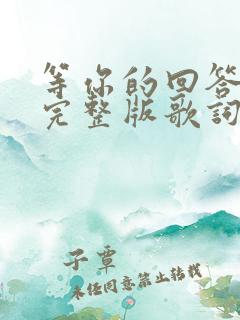 等你的回答
完整版歌词
子覃
未经同意禁止转载